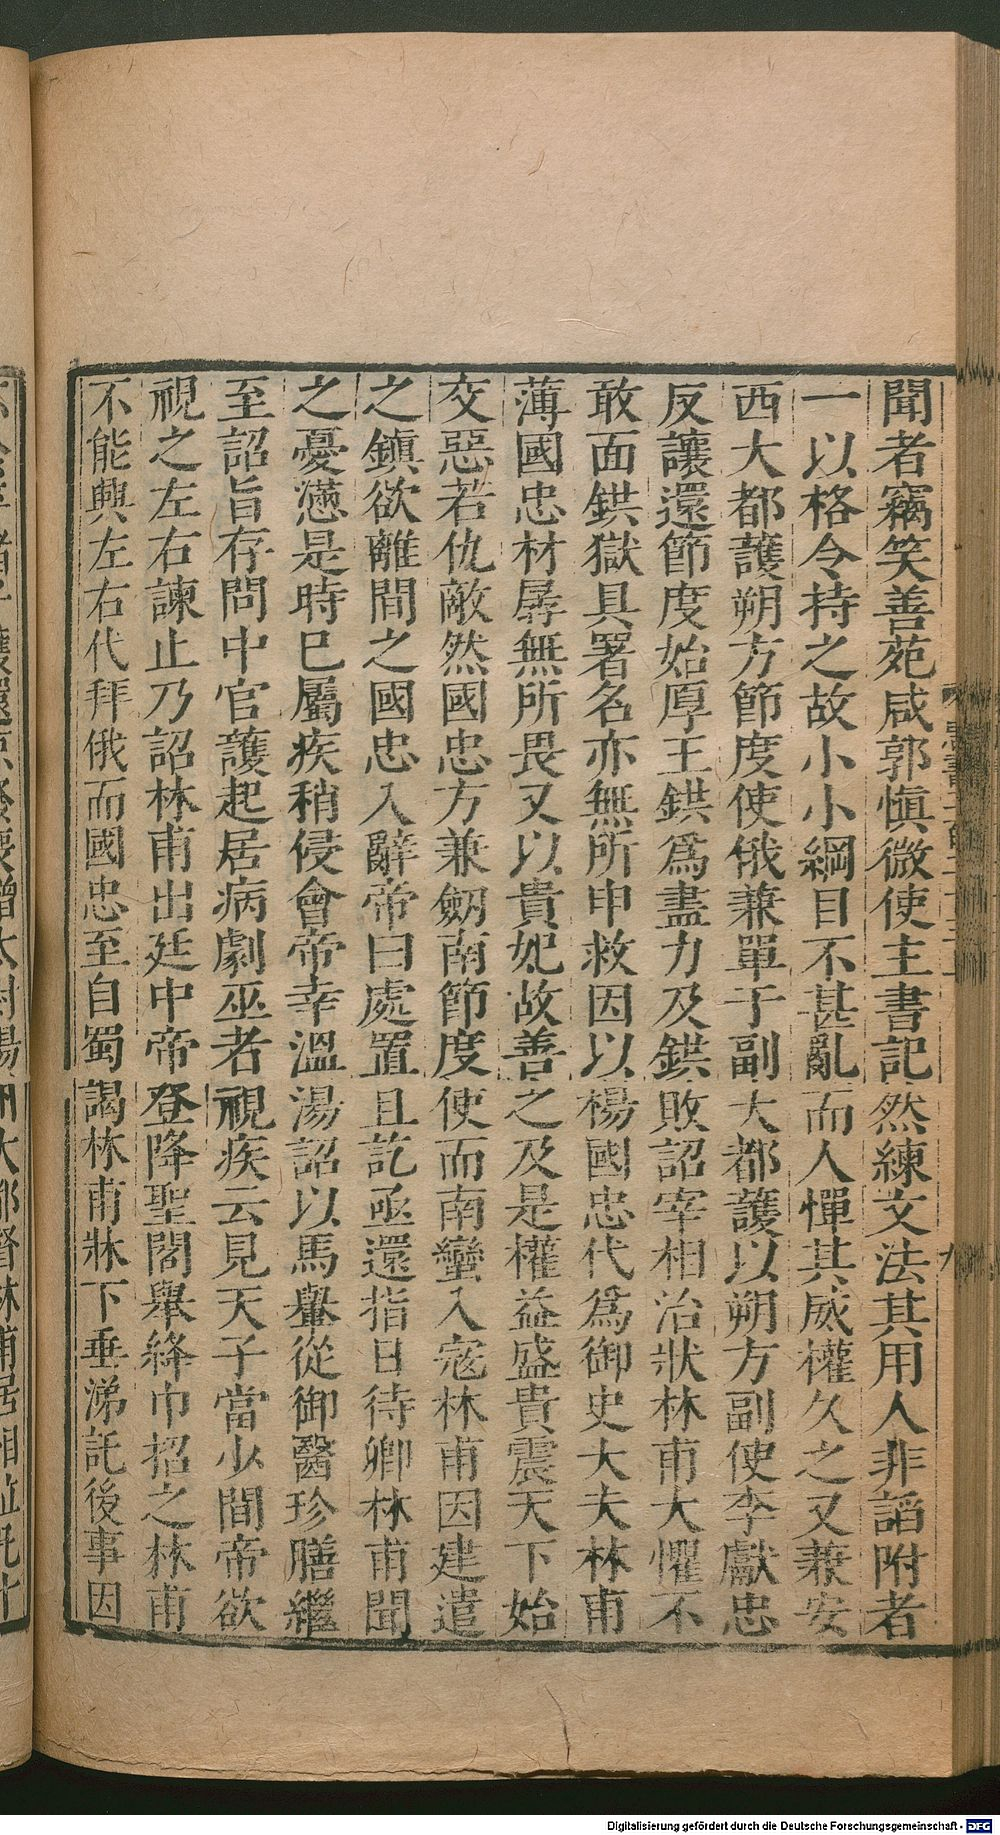 聞者竊笑善苑咸郭慎微使主書記然練文法其用人非諂附者
一以格令持之故小小綱目不甚亂而人憚其威權久之又兼安
西大都護朔方節度使俄兼單于副大都護以朔方副使李獻忠
反讓還節度始厚王鉷爲盡力及鉷敗詔宰相治狀林甫大懼不
敢面鉷獄具署名亦無所申救因以楊國忠代爲御史大夫林甫
薄國忠材孱無所畏又以貴妃故善之及是權益盛貴震天下始
交惡若仇敵然國忠方兼劒南節度使而南蠻入寇林甫因建遣
之鎮欲離間之國忠入辭帝曰處置且訖亟還指日待卿林甫聞
之憂懣是時已屬疾稍侵會帝幸溫湯詔以馬轝從御醫珍膳繼
至詔旨存問中官護起居病劇巫者視疾云見天子當少間帝欲
視之左右諫止乃詔林甫出廷中帝登降聖閣舉絳巾招之林甫
不能興左右代拜俄而國忠至自蜀謁林甫牀下垂涕託後事因
Digitalisierung gefördert durch die Deutsche Forschungsgemeinschaft - DFG